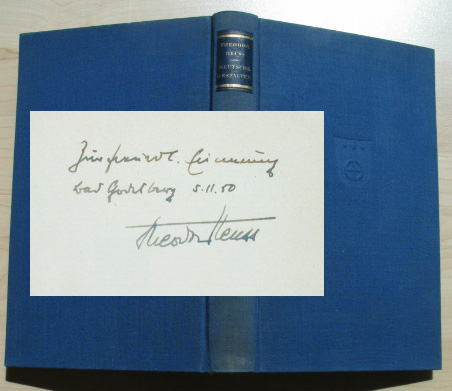 THEODOR
HEUSS
DEUTSCHE
GESTALTEN
Zur freundl. Erinnerung
Bad Godesberg 5.11.50
Theodor Heuss